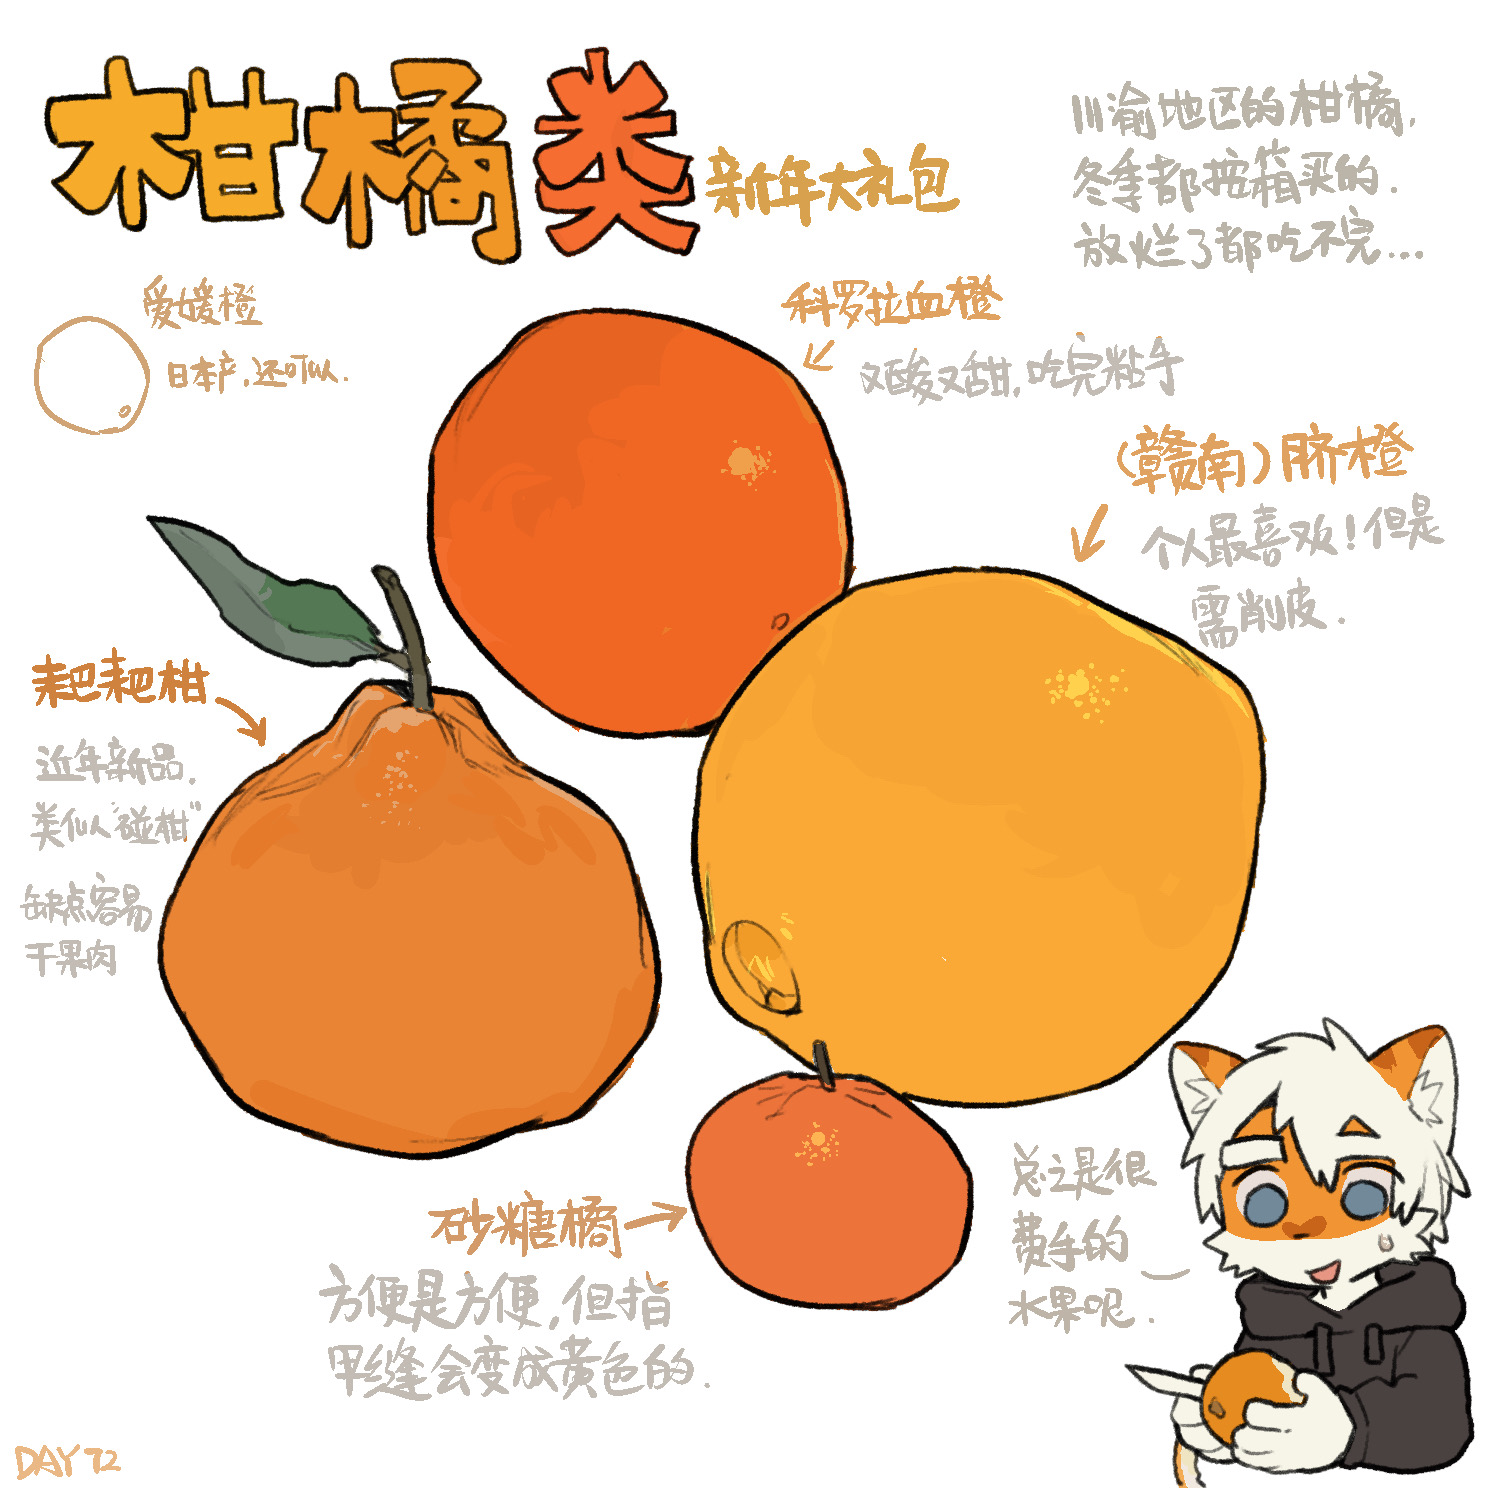 柑橘类
新年大礼包
川渝地区的柑橘，
冬季都按箱买的．
放烂了都吃不完…
爱媛橙
日本产，还可以．
科罗拉血橙
又酸又甜，吃完粘手
（赣南）脐橙
个人最喜欢！但是
需削皮．
耙耙柑
近年新品．
类似“碰柑”
缺点容易
干果肉
砂糖橘
方便是方便，但指
甲缝会变成黄色的．
总之是很
费手的
水果呢．
DAY 72